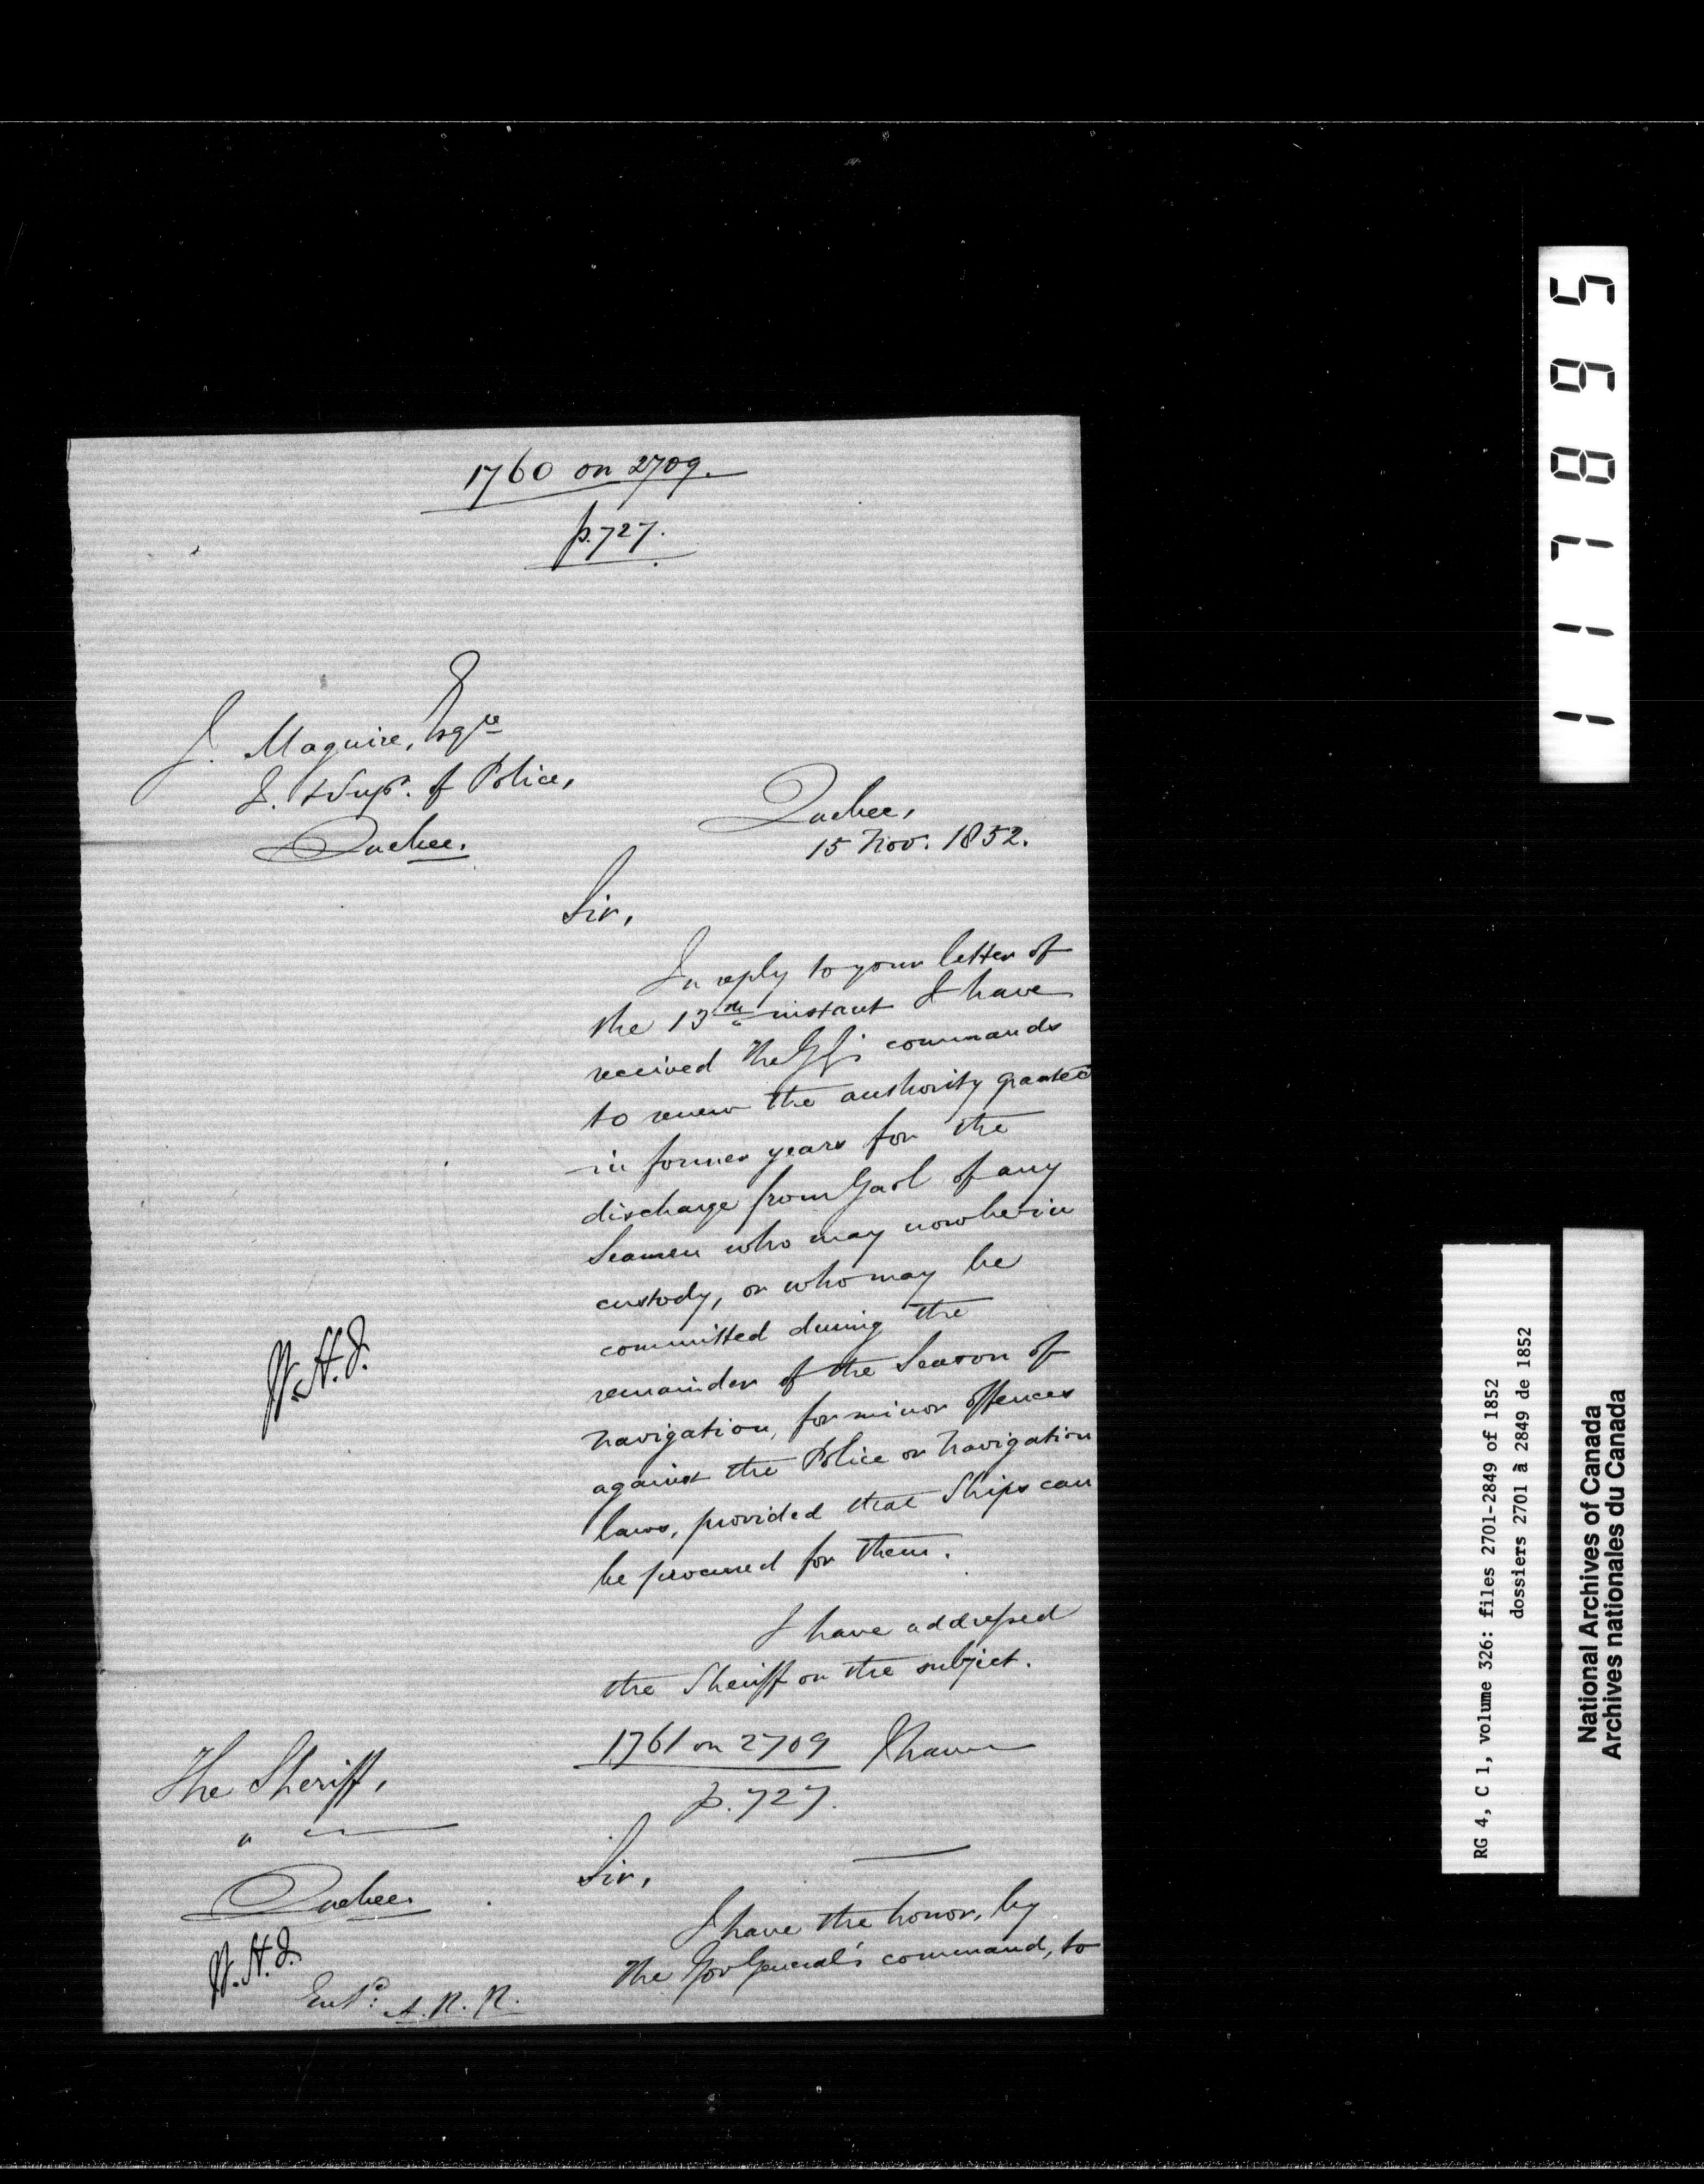 1760 on 2709.
p. 727.
J. Maguire, Esqre
J. & Supt. of Police,
Quebec.
Quebec,
15 Nov. 1852.
Sir,
In reply to your letter of
the 13th instant I have
received the GG's commands
to renew the authority granted
in former years for the
discharge from Gaol of any
Seamen who may now be in
custody, or who may be
committed during the
remainder of the Season of
navigation, for minor offences
against the Police or Navigation
laws, provided that Ships can
be procured for them.
I have addressed
the Sheriff on the subject.
I have
1761 on 2709
p. 727.
The Sheriff,
" "
Quebec.
Sir,
I have the honor, by
the Gov General's command, to
Entd: A. R. R.
117895
RG 4, C 1, volume 326: files 2701-2849 of 1852
dossiers 2701 à 2849 de 1852
National Archives of Canada
Archives nationales du Canada